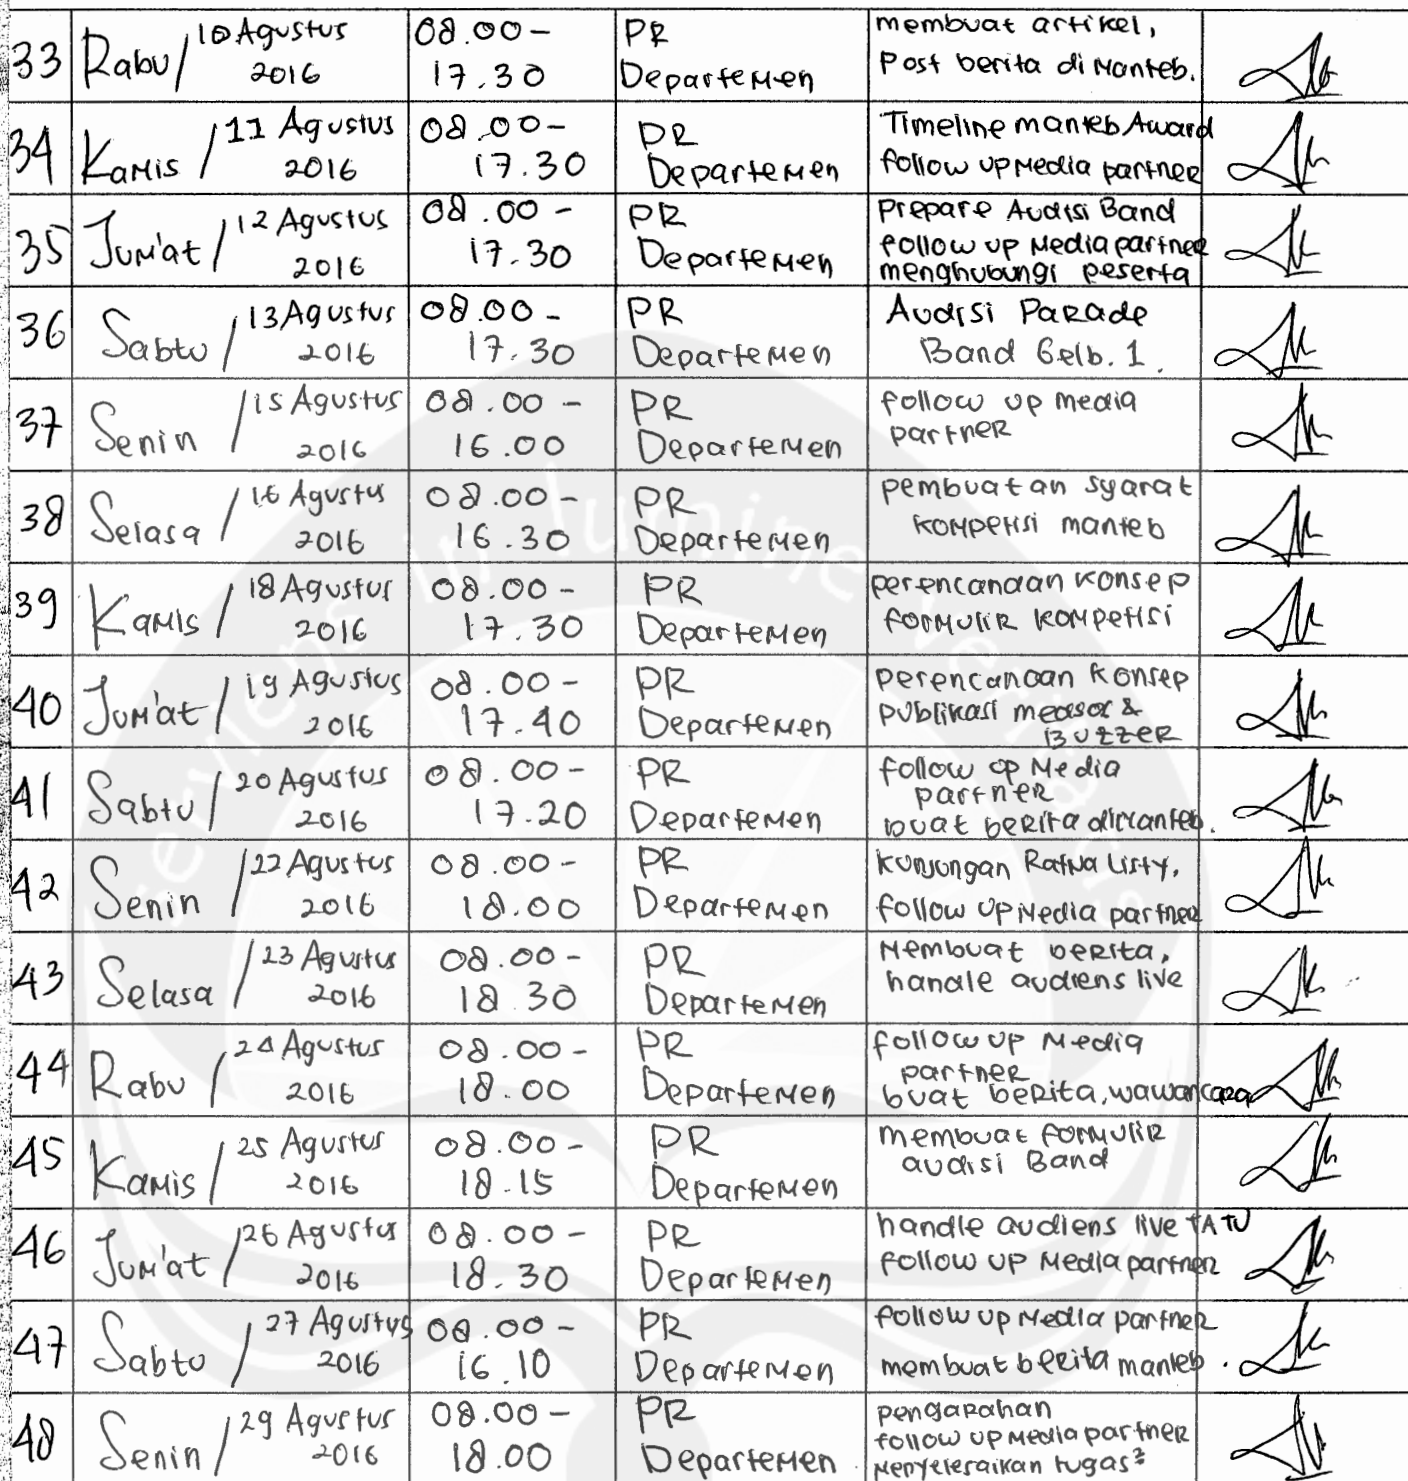 33 Rabu / 10 Agustus 2016 08.00 - 17.30 PR Departemen membuat artikel, post berita di manteb.
34 Kamis / 11 Agustus 2016 08.00 - 17.30 PR Departemen Timeline manteb Award follow up Media partner
35 Jum'at / 12 Agustus 2016 08.00 - 17.30 PR Departemen Prepare Audisi Band follow up Media partner menghubungi peserta
36 Sabtu / 13 Agustus 2016 08.00 - 17.30 PR Departemen Audisi Parade Band Gelb. 1.
37 Senin / 15 Agustus 2016 08.00 - 16.00 PR Departemen follow up media partner
38 Selasa / 16 Agustus 2016 08.00 - 16.30 PR Departemen pembuatan syarat kompetisi manteb
39 Kamis / 18 Agustus 2016 08.00 - 17.30 PR Departemen perencanaan konsep formulir kompetisi
40 Jum'at / 19 Agustus 2016 08.00 - 17.40 PR Departemen perencanaan konsep publikasi medsos & Buzzer
41 Sabtu / 20 Agustus 2016 08.00 - 17.20 PR Departemen follow up Media partner buat berita dimanteb.
42 Senin / 22 Agustus 2016 08.00 - 18.00 PR Departemen kunjungan Ratna Listy, follow up Media partner
43 Selasa / 23 Agustus 2016 08.00 - 18.30 PR Departemen Membuat berita, handle audiens live
44 Rabu / 24 Agustus 2016 08.00 - 18.00 PR Departemen follow up Media partner buat berita, wawancara
45 Kamis / 25 Agustus 2016 08.00 - 18.15 PR Departemen membuat formulir audisi Band
46 Jum'at / 26 Agustus 2016 08.00 - 18.30 PR Departemen handle audiens live TATU follow up Media partner
47 Sabtu / 27 Agustus 2016 08.00 - 16.10 PR Departemen follow up Media partner membuat berita manteb.
48 Senin / 29 Agustus 2016 08.00 - 18.00 PR Departemen pengarahan follow up Media partner Menyelesaikan tugas²
serviens in lumine veritatis